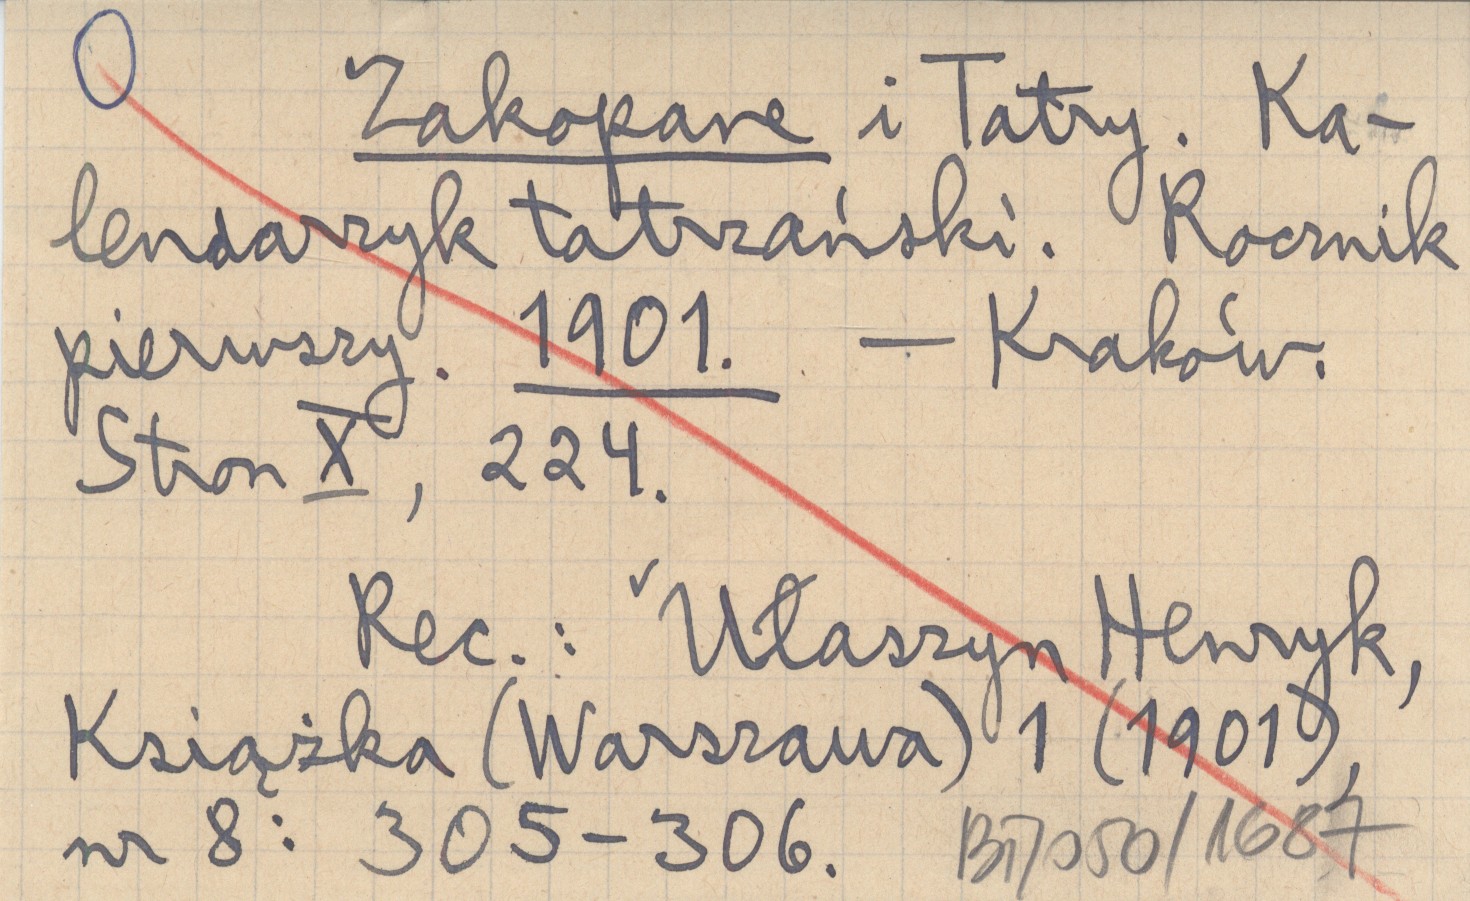 Zakopane i Tatry. Ka-
lendarzyk tatrzański. Rocznik
pierwszy. 1901. — Kraków.
Stron X, 224.
Rec.: Ułaszyn Henryk,
Książka (Warszawa) 1 (1901),
nr 8: 305-306.